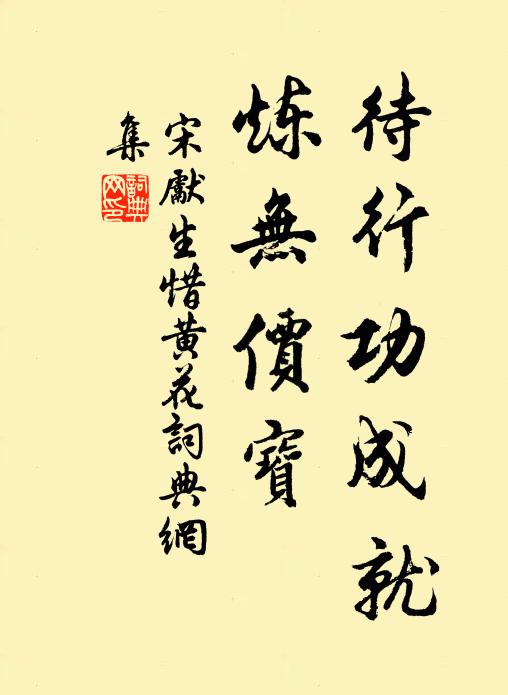 待行功成就
炼無價寶
宋獻生惜黄花詞典網
集
詞典
网印